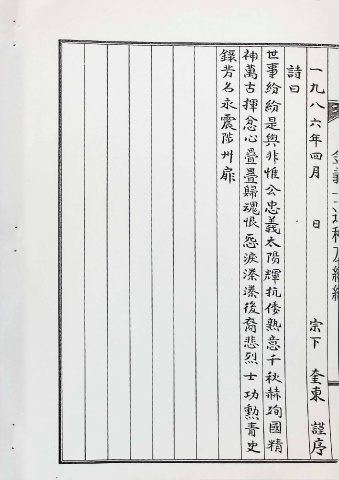 一九八六年四月　日　宗下　奎東　謹序
詩曰
世事紛紛是與非惟公忠義太陽輝抗倭熟意千秋赫殉國精
神萬古揮忿心疊疊歸魂恨怨淚溱溱後裔悲烈士功勳靑史
錄芳名永震陟州扉